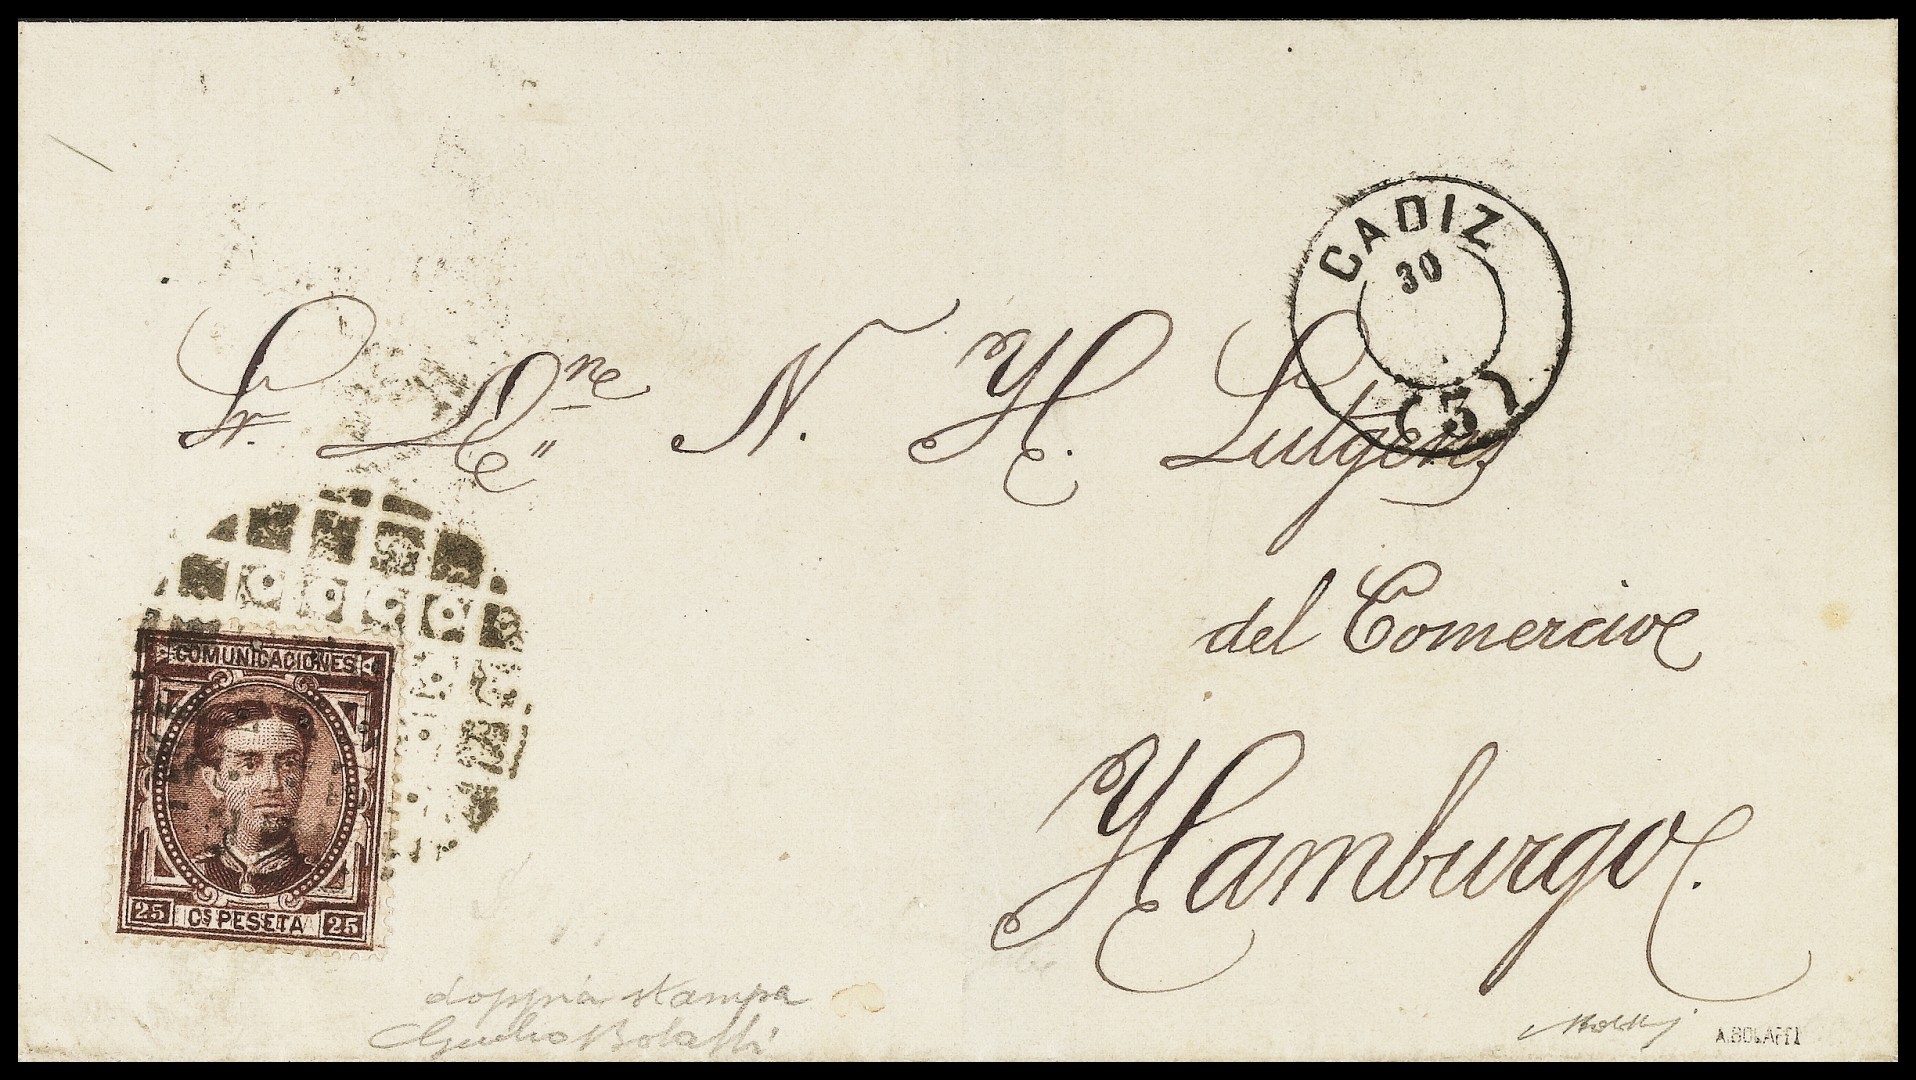 CADIZ
30
(3)
Sr. Dne N. H. Lutgens
del Comercio
Hamburgo.
COMUNICACIONES
25 Cs PESETA 25
doppia stampa
Giulio Bolaffi
A. BOLAFFI